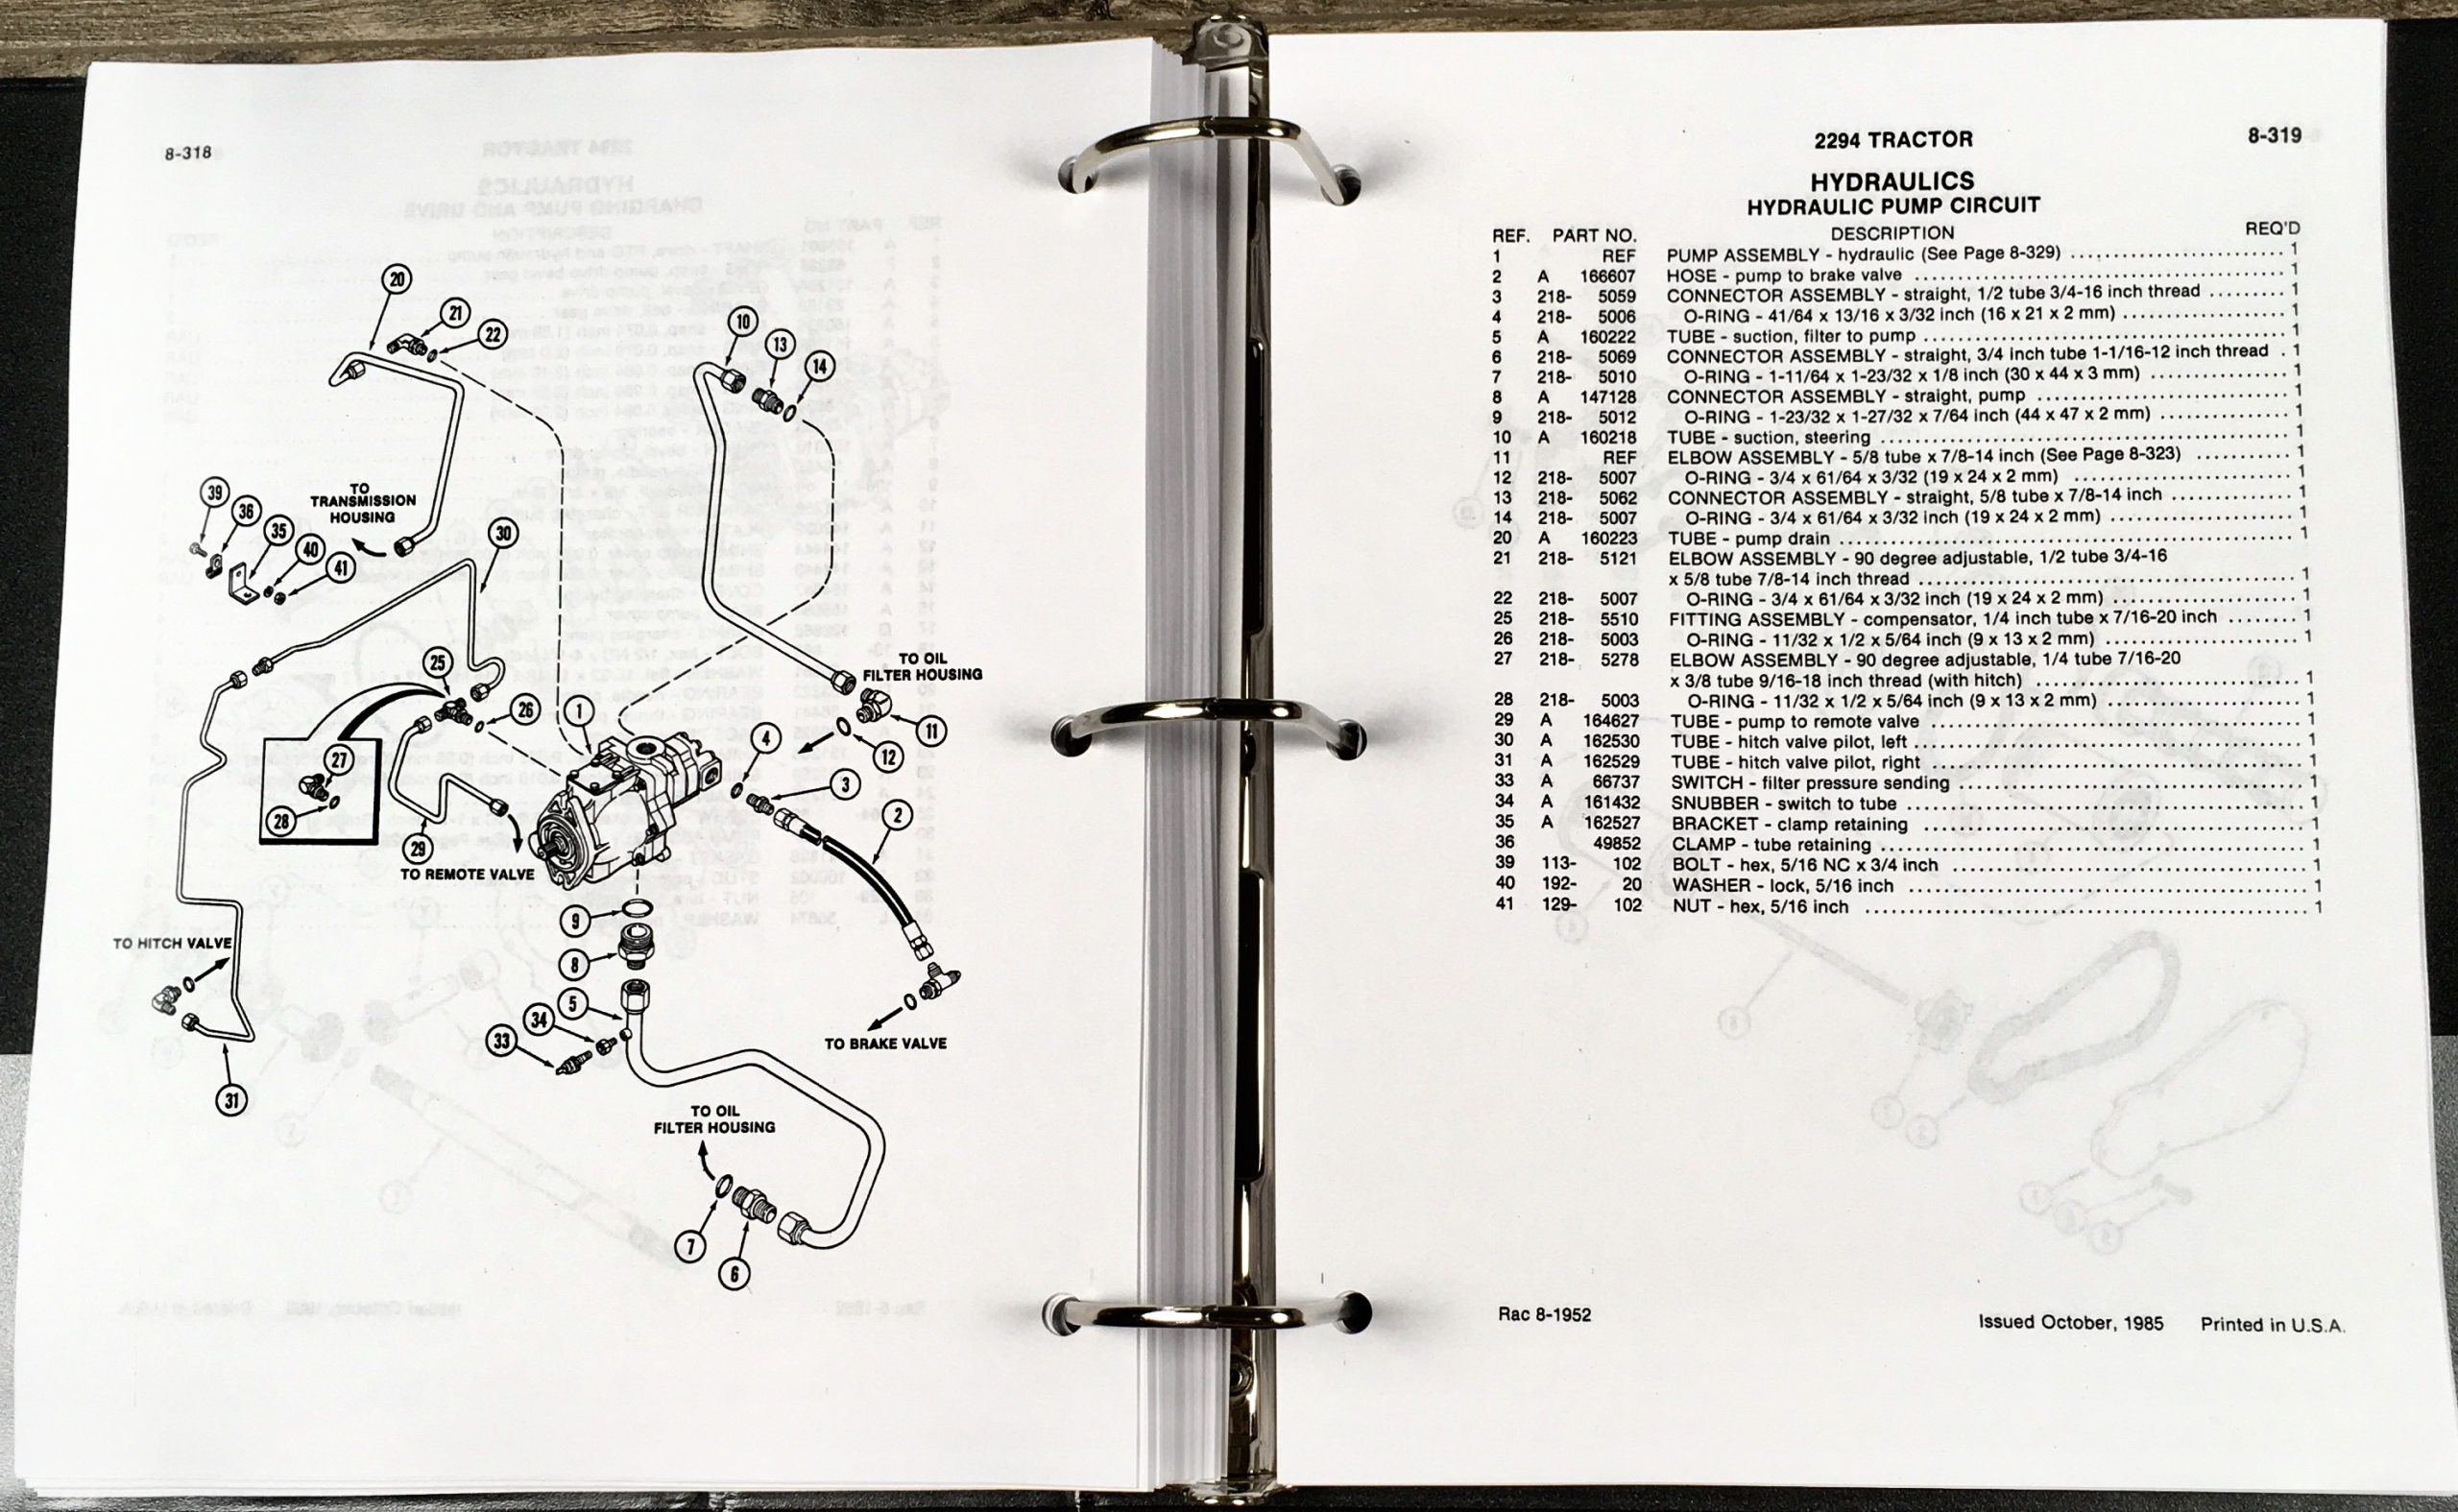 8-318
20
21
22
10
13
14
39
36
35
40
41
TO
TRANSMISSION
HOUSING
30
25
26
1
TO OIL
FILTER HOUSING
11
12
4
3
2
27
28
29
TO REMOTE VALVE
9
8
5
34
33
TO HITCH VALVE
31
TO BRAKE VALVE
TO OIL
FILTER HOUSING
7
6
2294 TRACTOR 8-319
HYDRAULICS
HYDRAULIC PUMP CIRCUIT
REF. PART NO. DESCRIPTION REQ'D
1 REF PUMP ASSEMBLY - hydraulic (See Page 8-329) ........................ 1
2 A 166607 HOSE - pump to brake valve ........................ 1
3 218- 5059 CONNECTOR ASSEMBLY - straight, 1/2 tube 3/4-16 inch thread ......... 1
4 218- 5006 O-RING - 41/64 x 13/16 x 3/32 inch (16 x 21 x 2 mm) .................. 1
5 A 160222 TUBE - suction, filter to pump ........................ 1
6 218- 5069 CONNECTOR ASSEMBLY - straight, 3/4 inch tube 1-1/16-12 inch thread . 1
7 218- 5010 O-RING - 1-11/64 x 1-23/32 x 1/8 inch (30 x 44 x 3 mm) ............... 1
8 A 147128 CONNECTOR ASSEMBLY - straight, pump ........................ 1
9 218- 5012 O-RING - 1-23/32 x 1-27/32 x 7/64 inch (44 x 47 x 2 mm) .............. 1
10 A 160218 TUBE - suction, steering ........................ 1
11 REF ELBOW ASSEMBLY - 5/8 tube x 7/8-14 inch (See Page 8-323) ........... 1
12 218- 5007 O-RING - 3/4 x 61/64 x 3/32 (19 x 24 x 2 mm) ........................ 1
13 218- 5062 CONNECTOR ASSEMBLY - straight, 5/8 tube x 7/8-14 inch .............. 1
14 218- 5007 O-RING - 3/4 x 61/64 x 3/32 inch (19 x 24 x 2 mm) .................... 1
20 A 160223 TUBE - pump drain ........................ 1
21 218- 5121 ELBOW ASSEMBLY - 90 degree adjustable, 1/2 tube 3/4-16
x 5/8 tube 7/8-14 inch thread ........................ 1
22 218- 5007 O-RING - 3/4 x 61/64 x 3/32 inch (19 x 24 x 2 mm) .................... 1
25 218- 5510 FITTING ASSEMBLY - compensator, 1/4 inch tube x 7/16-20 inch ........ 1
26 218- 5003 O-RING - 11/32 x 1/2 x 5/64 inch (9 x 13 x 2 mm) ..................... 1
27 218- 5278 ELBOW ASSEMBLY - 90 degree adjustable, 1/4 tube 7/16-20
x 3/8 tube 9/16-18 inch thread (with hitch) ........................ 1
28 218- 5003 O-RING - 11/32 x 1/2 x 5/64 inch (9 x 13 x 2 mm) ..................... 1
29 A 164627 TUBE - pump to remote valve ........................ 1
30 A 162530 TUBE - hitch valve pilot, left ........................ 1
31 A 162529 TUBE - hitch valve pilot, right ........................ 1
33 A 66737 SWITCH - filter pressure sending ........................ 1
34 A 161432 SNUBBER - switch to tube ........................ 1
35 A 162527 BRACKET - clamp retaining ........................ 1
36 49852 CLAMP - tube retaining ........................ 1
39 113- 102 BOLT - hex, 5/16 NC x 3/4 inch ........................ 1
40 192- 20 WASHER - lock, 5/16 inch ........................ 1
41 129- 102 NUT - hex, 5/16 inch ........................ 1
Rac 8-1952 Issued October, 1985 Printed in U.S.A.